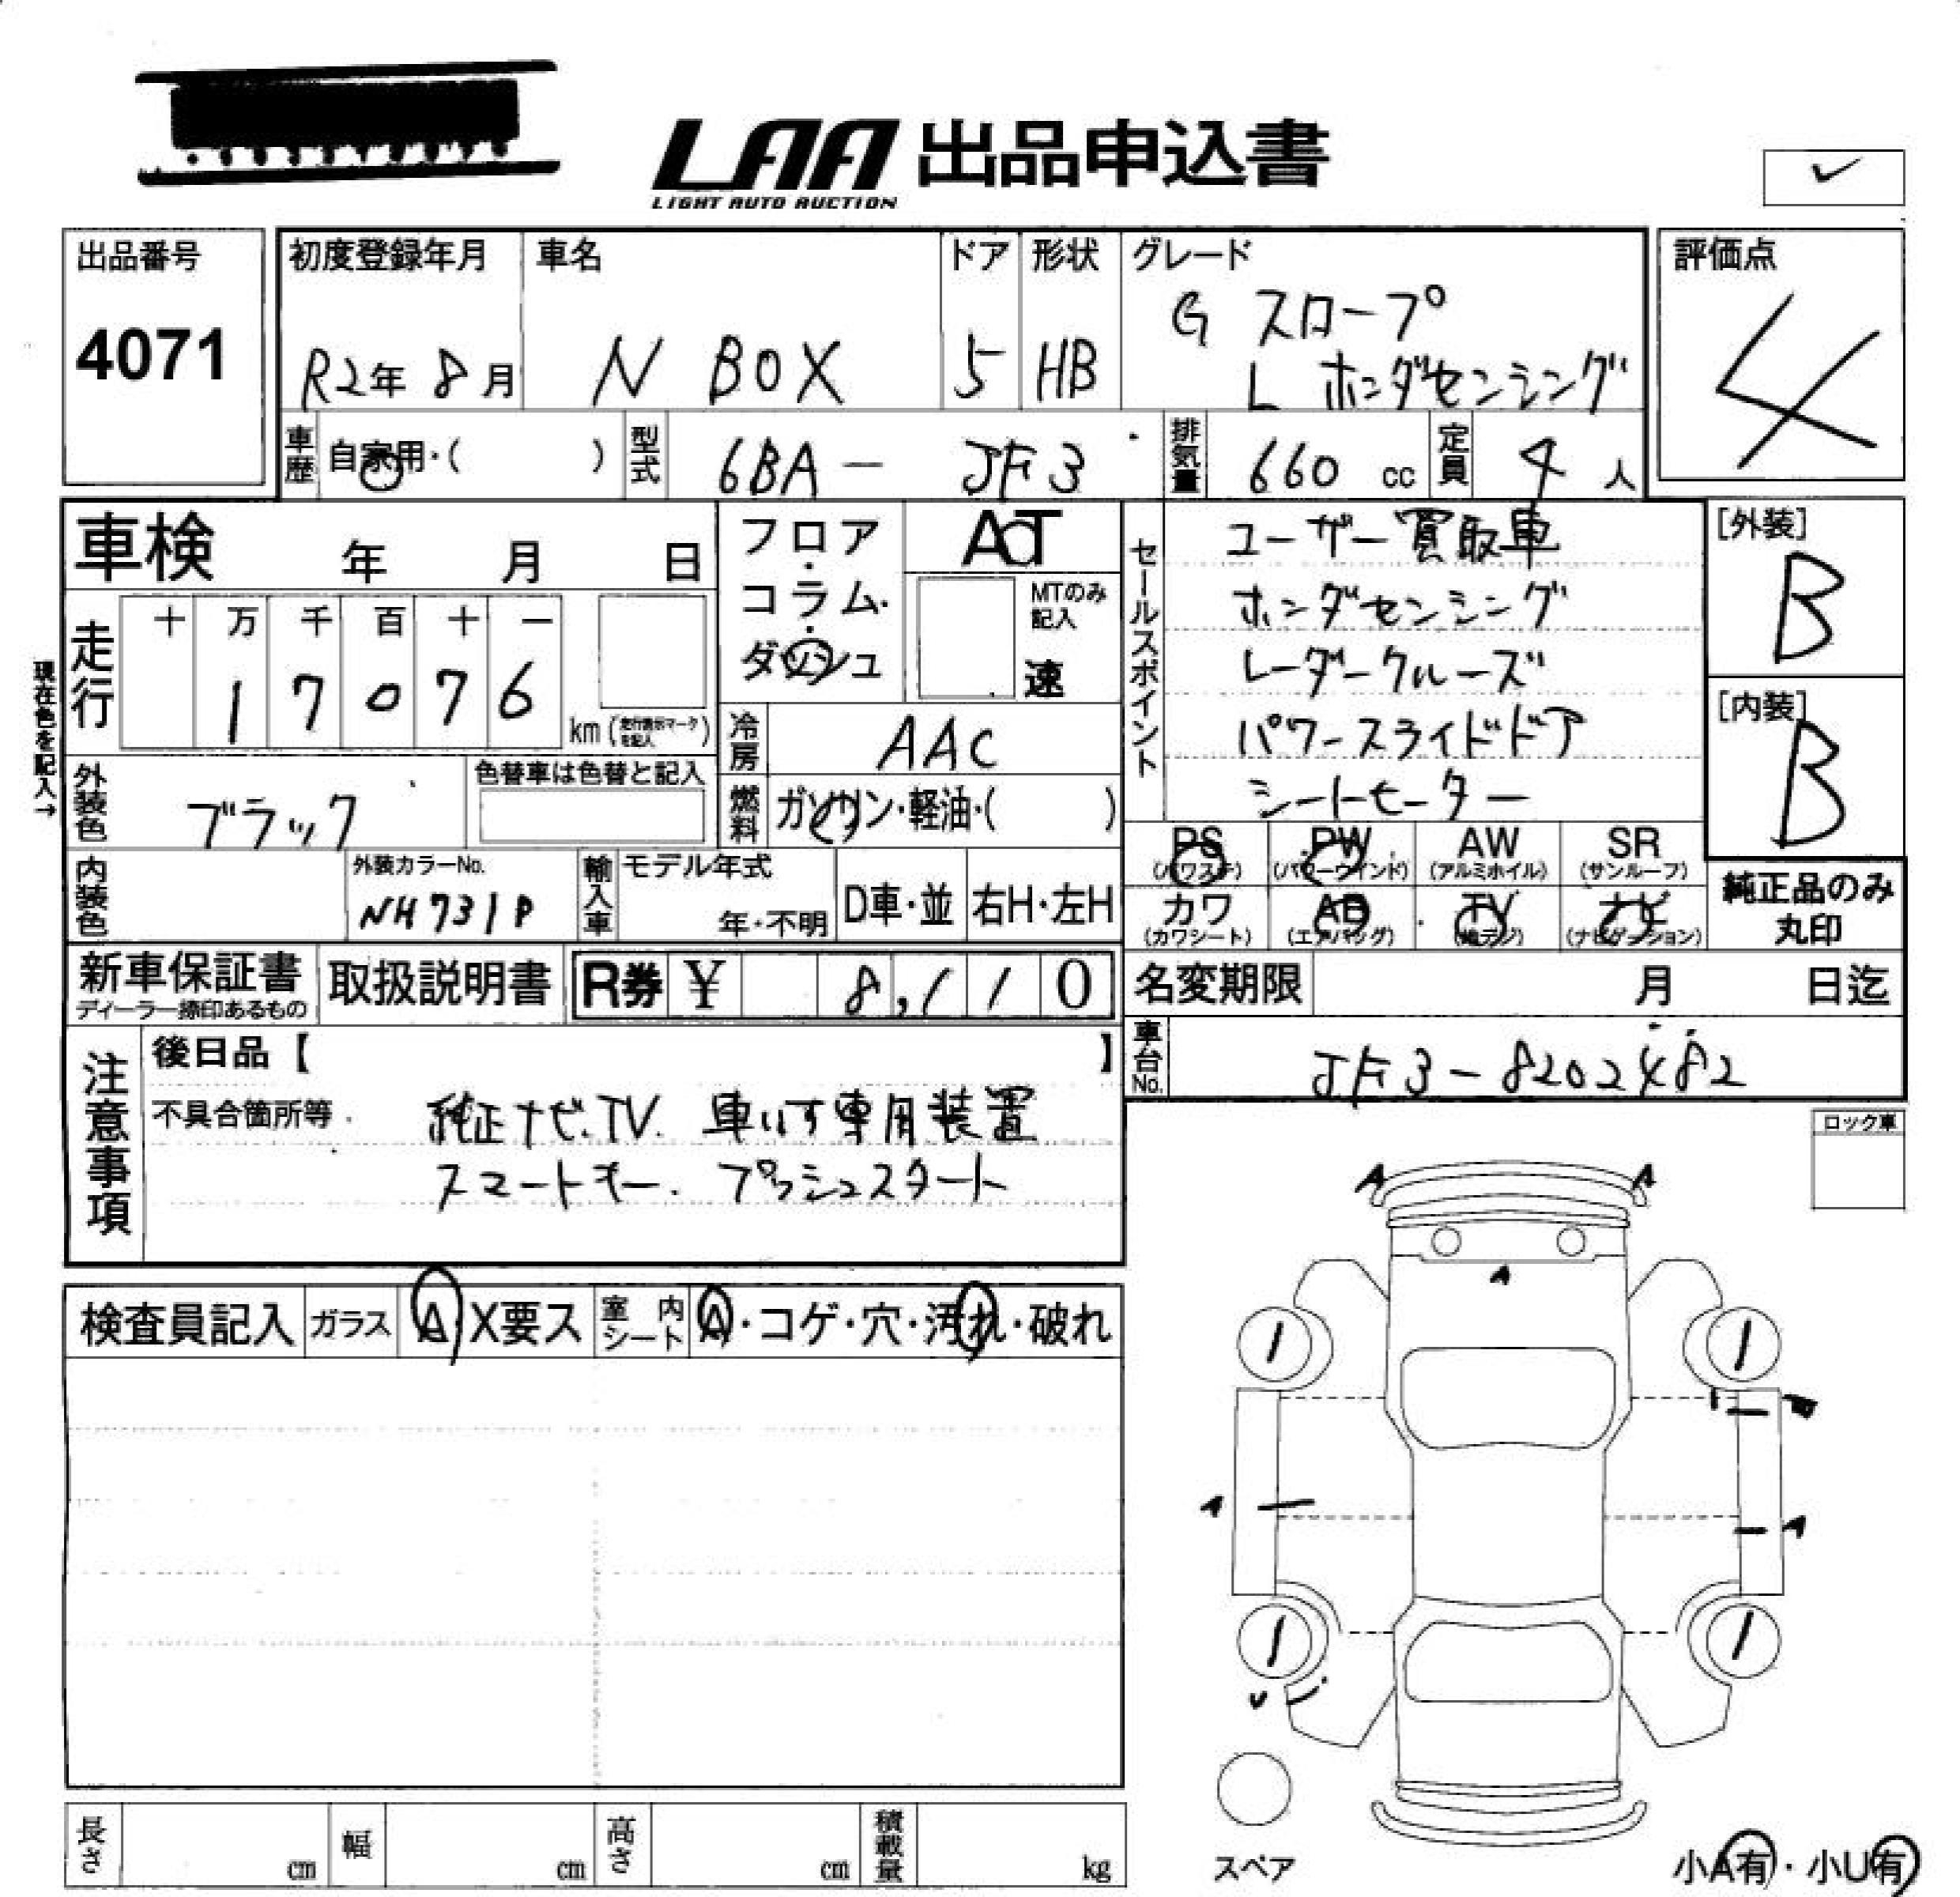 LAA 出品申込書
LIGHT AUTO AUCTION
✓
出品番号
4071
初度登録年月
R2年 8月
車名
N BOX
ドア
5
形状
HB
グレード
G スロープ
L ホンダセンシング
評価点
4
車歴
自家用・( )
型式
6BA - JF3
排気量
660 cc
定員
4 人
車検 年 月 日
フロア・
コラム・
ダッシュ
MTのみ
記入
速
現在色を記入→
走行
十 万 千 百 十 一
1 7 0 7 6
km (走行表示マークを記入)
冷房
AAC
外装色
ブラック
色替車は色替と記入
燃料
ガソリン・軽油・( )
内装色
外装カラーNo.
NH731P
輸入車
モデル年式
年・不明
D車・並
右H・左H
セールスポイント
ユーザー買取車
ホンダセンシング
レーダークルーズ
パワースライドドア
シートヒーター
[外装]
B
[内装]
B
PS
(パワステ)
PW
(パワーウインド)
AW
(アルミホイル)
SR
(サンルーフ)
カワ
(カワシート)
AB
(エアバッグ)
TV
(地デジ)
ナビ
(ナビゲーション)
純正品のみ
丸印
新車保証書
ディーラー捺印あるもの
取扱説明書
R券 ¥ 8,110
名変期限 月 日迄
車台No.
JF3-8202482
注意事項
後日品【 】
不具合箇所等
純正ナビ.TV. 車いす専用装置
スマートキー. プッシュスタート
ロック車
検査員記入
ガラス
A・X要ス
室内シート
A・コゲ・穴・汚れ・破れ
A A
A
A
A
長さ cm
幅 cm
高さ cm
積載量 kg
スペア
小A有・小U有